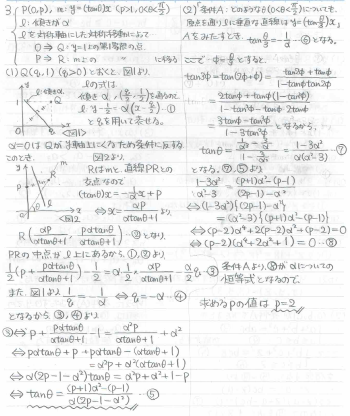 3 P(0,p), m: y=(tanθ)x (p>1, 0<θ<π/2)
l: 傾きが α
lを対称軸にした対称移動によって
O⇒Q: y=1上の第1象限の点
P⇒R: m上の
(1) Q(q,1)(q>0)とおくと図1より,
lの式は
l: y-1/2=α(x-q/2)…①
とqを用いて表せる。
<図1>
α=0はQがy軸上にくるため条件に反する
このとき, 図2より,
Rはmと, 直線PRとの
交点なので
(tanθ)x=-1/α x+p
⇔ x=αp/(αtanθ+1) より,
<図2
R(αp/(αtanθ+1), pαtanθ/(αtanθ+1))…②となり,
PRの中点がl上にあるから, ①,②より
1/2(p+pαtanθ/(αtanθ+1))-1/2=α・1/2・αp/(αtanθ+1)-α/2 q…③
また 図1より 1/q=-1/α ⇔ q=-α…④
となるから, ③,④より
③⇔p+pαtanθ/(αtanθ+1)-1=α²p/(αtanθ+1)+α²
⇔pαtanθ+p+pαtanθ-(αtanθ+1)
=α²p+α²(αtanθ+1)
⇔α(2p-1-α²)tanθ=α²p+α²+1-p
⇔tanθ=((p+1)α²-(p-1))/(α(2p-1-α²))…⑤
(2)「条件A: どのようなθ(0<θ<π/2)についても,
原点を通りlに垂直な直線はy=(tanθ/3)x」
Aをみたすとき, tanθ/3=-1/α…⑥となる。
ここで・φ=θ/3とすると,
tan3φ=tan(2φ+φ)=(tan2φ+tanφ)/(1-tan2φtanφ)
=(2tanφ+tanφ(1-tan²φ))/(1-tan²φ-tanφ・2tanφ)
=(3tanφ-tan³φ)/(1-3tan²φ)となるから,
tanθ=(1/α³-3/α)/(1-3/α²)=(1-3α²)/(α(α²-3))…⑦
となる。⑦,⑤より
(1-3α²)/(α²-3)=((p+1)α²-(p-1))/((2p-1)-α²)
⇔(1-3α²){(2p-1)-α²}
=(α²-3){(p+1)α²-(p-1)}
⇔(p-2)α⁴+2(p-2)α²+(p-2)=0
⇔(p-2)(α⁴+2α²+1)=0…⑧
条件Aより,⑧がαについての
恒等式となるので,
求めるpの値は p=2